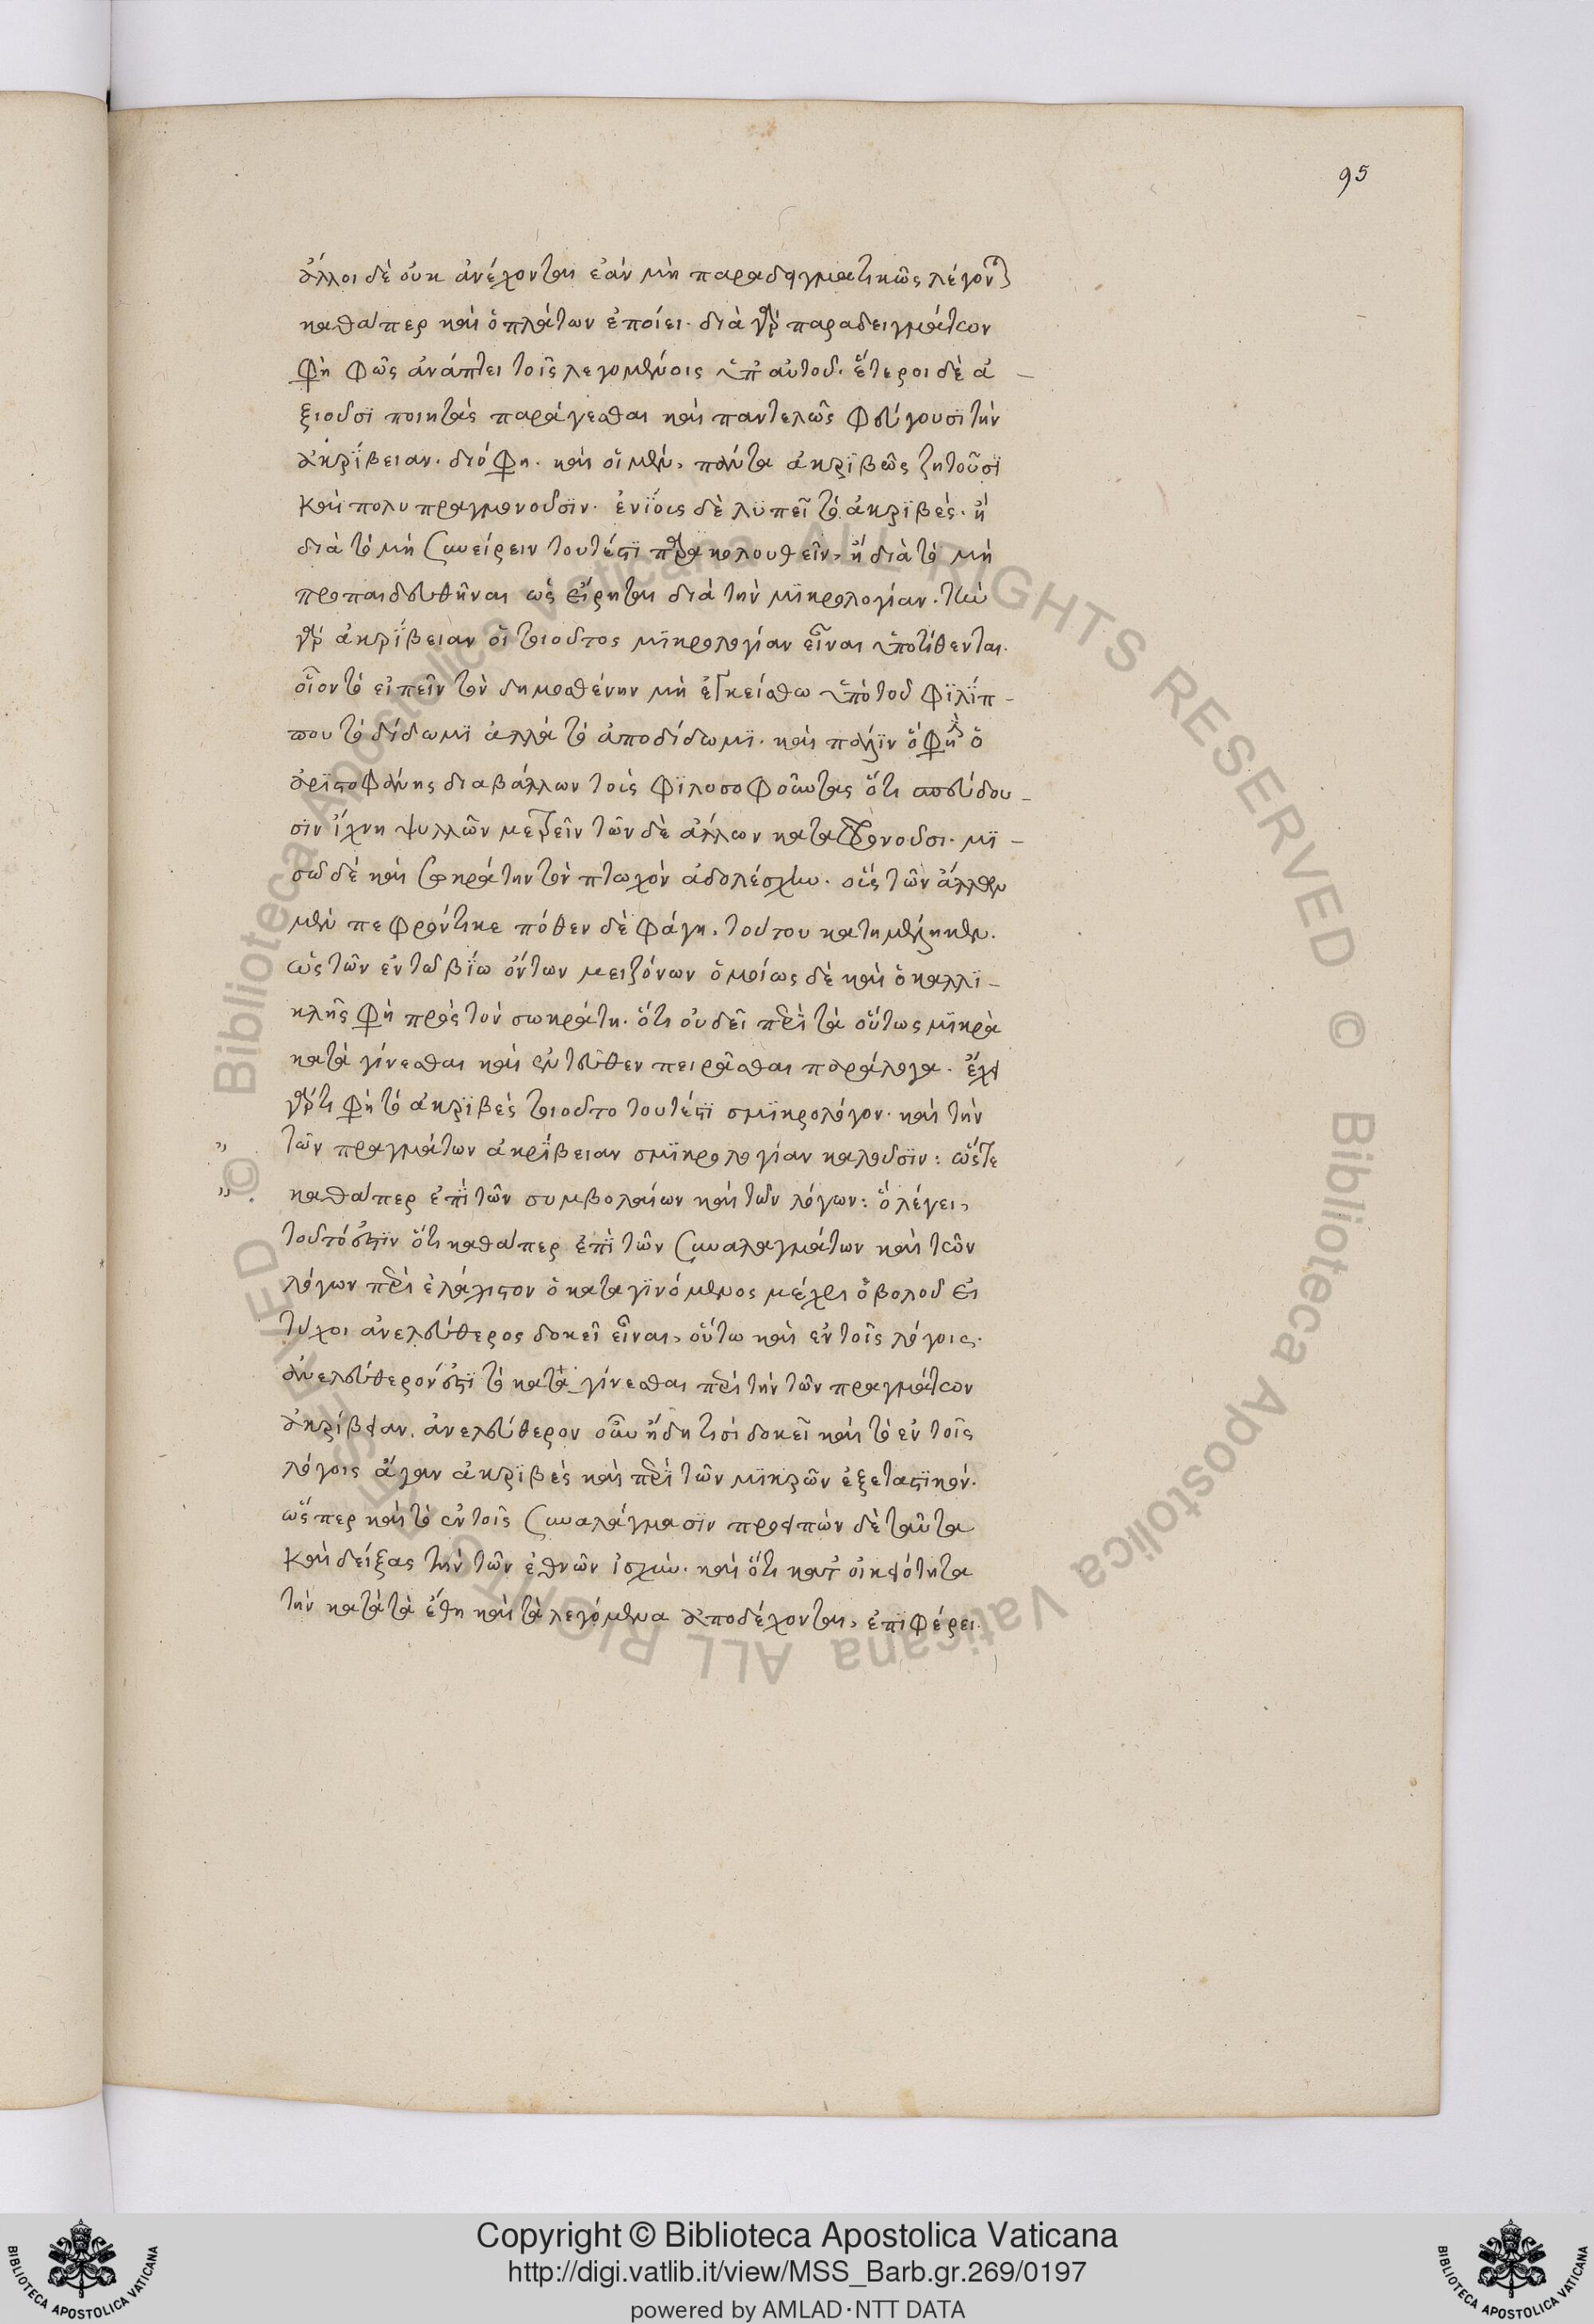 95
ἄλλοι δὲ οὐκ ἀνέχονται ἐὰν μὴ παραδειγματικῶς λέγον
καθάπερ καὶ ὁ πλάτων ἐποίει. διὰ γὰρ παραδειγμάτων
φὴ φῶς ἀνάπτει τοῖς λεγομένοις ὑπ' αὐτοῦ. ἕτεροι δὲ ἀ-
ξιοῦσϊ ποιητὰς παράγεσθαι καὶ παντελῶς φεύγουσϊ τὴν
ἀκρΐβειαν. διό φη. καὶ οἱ μὲν, πάντα ἀκρϊβῶς ζητοῦσϊ
καὶ πολυπραγμονοῦσϊν. ἐνΐοις δὲ λϋπεῖ τὸ ἀκρϊβές. ἢ
διὰ τὸ μὴ συνείρειν τουτέστϊ παρακολουθεῖν, ἢ διὰ τὸ μὴ
προπαιδευθῆναι ὡς εἴρηται διὰ τὴν μϊκρολογίαν. τὴν
γὰρ ἀκρΐβειαν οἱ τοιοῦτος μϊκρολογίαν εἶναι ὑποτίθενται.
οἷον τὸ εἰπεῖν τὸν δημοσθένην μὴ ἐγκείσθω ὑπὸ τοῦ φϊλΐπ-
που τὸ δίδωμϊ ἀλλὰ τὸ ἀποδίδωμϊ. καὶ πάλϊν ὅ φη ὁ
ἀρϊστοφάνης διαβάλλων τοὺς φϊλοσοφοῦντας ὅτι σπεύδου-
σϊν ἴχνη ψυλλῶν μετρεῖν τῶν δὲ ἄλλων καταφρονοῦσι. μϊ-
σῶ δὲ καὶ σωκράτην τὸν πτωχὸν ἀδολέσχην. ὃς τῶν ἄλλων
μὲν πεφρόντικε πόθεν δὲ φάγη, τούτου κατημέληκεν.
ὡς τῶν ἐν τῶ βΐω ὄντων μειζόνων ὁμοίως δὲ καὶ ὁ καλλϊ-
κλῆς φὴ πρὸς τὸν σωκράτη. ὅτι οὐ δεῖ περὶ τὰ οὕτως μϊκρὰ
καταγίνεσθαι καὶ ἐντεῦθεν πειρᾶσθαι παράλογα. ἔχει
γάρ τι φὴ τὸ ἀκρϊβὲς τοιοῦτο τουτέστϊ σμϊκρολόγον. καὶ τὴν
" τῶν πραγμάτων ἀκρΐβειαν σμϊκρολογίαν καλοῦσϊν: ὥστε
" καθάπερ ἐπϊ τῶν συμβολαίων καὶ τῶν λόγων: ὃ λέγει,
τοῦτό ἐστϊν ὅτι καθάπερ ἐπϊ τῶν συναλαγμάτων καὶ τῶν
λόγων περὶ ἐλάχιστον ὁ καταγϊνόμενος μέχρι ὀβολοῦ εἰ
τύχοι ἀνελεύθερος δοκεῖ εἶναι, οὕτω καὶ ἐν τοῖς λόγοις.
ἀνελεύθερόν ἐστϊ τὸ καταγίνεσθαι περὶ τὴν τῶν πραγμάτων
ἀκρίβειαν. ἀνελεύθερον οὖν ἤδη τισὶ δοκεῖ καὶ τὸ ἐν τοῖς
λόγοις ἄγαν ἀκρϊβὲς καὶ περϊ τῶν μϊκρῶν ἐξεταστϊκόν.
ὥσπερ καὶ τὸ ἐν τοῖς συναλάγμασϊν προειπὼν δὲ ταῦτα
καὶ δείξας τὴν τῶν ἐθνῶν ἰσχύν. καὶ ὅτι κατ' οἰκειότητα
τὴν κατὰ τὰ ἔθη καὶ τὰ λεγόμενα ἀποδέχονται, ἐπϊφέρει.
© Biblioteca Apostolica Vaticana ALL RIGHTS RESERVED
© Biblioteca Apostolica Vaticana ALL RIGHTS RESERVED
Copyright © Biblioteca Apostolica Vaticana
http://digi.vatlib.it/view/MSS_Barb.gr.269/0197
powered by AMLAD·NTT DATA
BIBLIOTECA APOSTOLICA VATICANA
BIBLIOTECA APOSTOLICA VATICANA